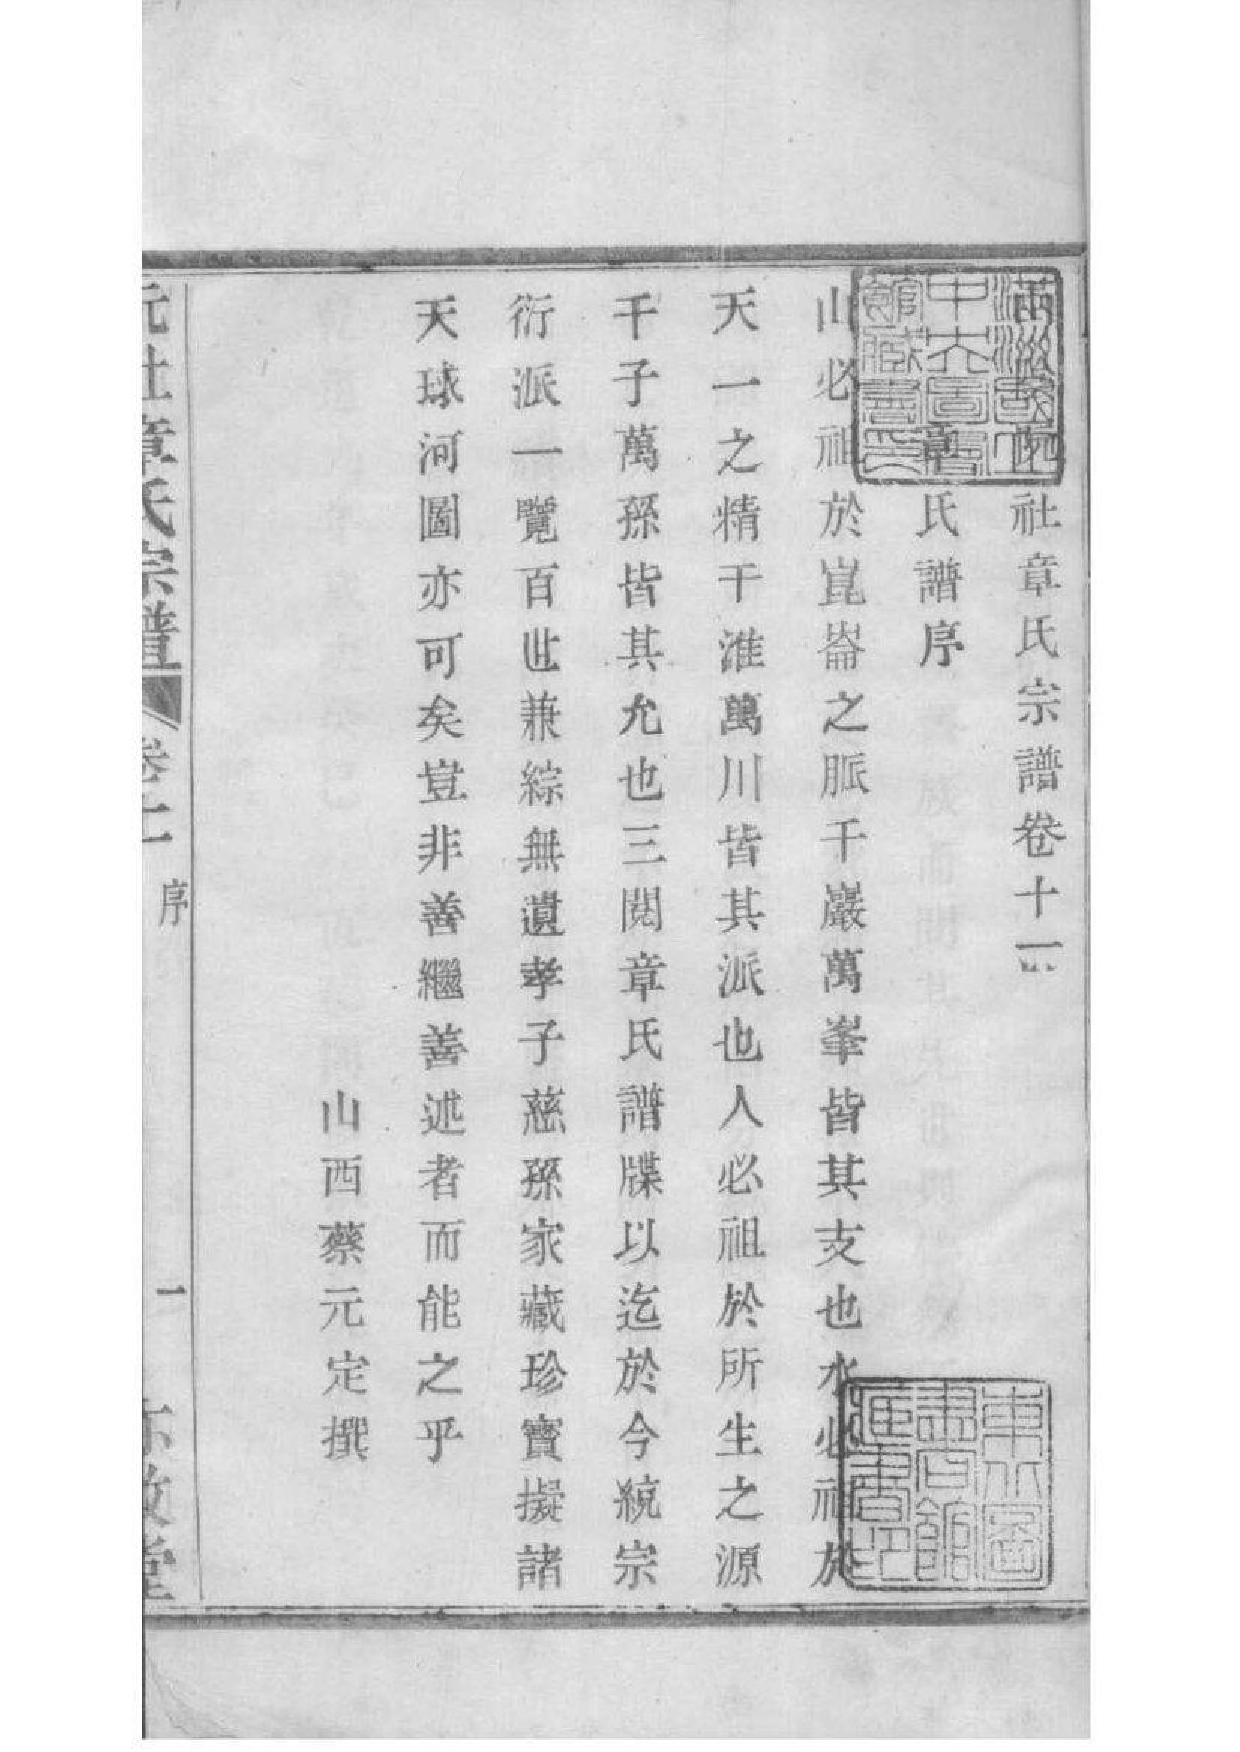 社章氏宗譜卷十一
章氏譜序
山必祖於崑崙之脈千巖萬峯皆其支也水必祖於
天一之精千淮萬川皆其派也人必祖於所生之源
千子萬孫皆其允也三閱章氏譜牒以迄於今統宗
衍派一覽百世兼綜無遺孝子慈孫家藏珍寶擬諸
天球河圖亦可矣豈非善繼善述者而能之乎
山西蔡元定撰
社章氏宗譜
卷十一
序
一
滿洲國立
中央圖書
館藏書印
東北圖
書館
藏書印